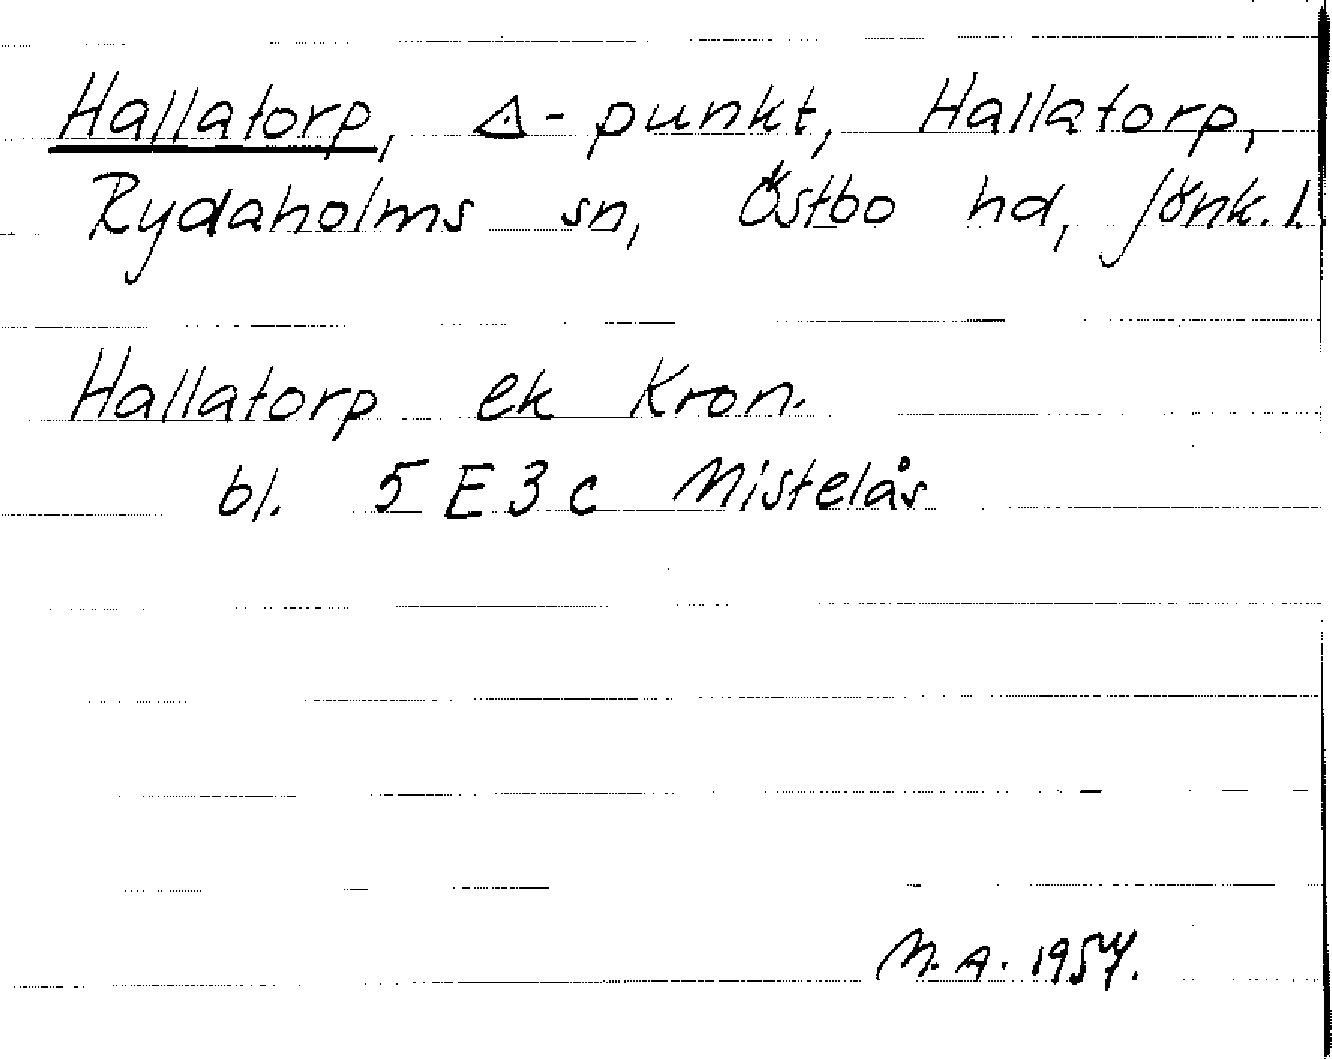 Hallatorp, △-punkt, Hallatorp,
Rydaholms sn, Östbo hd, Jönk. l.
Hallatorp ek Kron.
bl. 5E3c Mistelås
M. A. 1957.